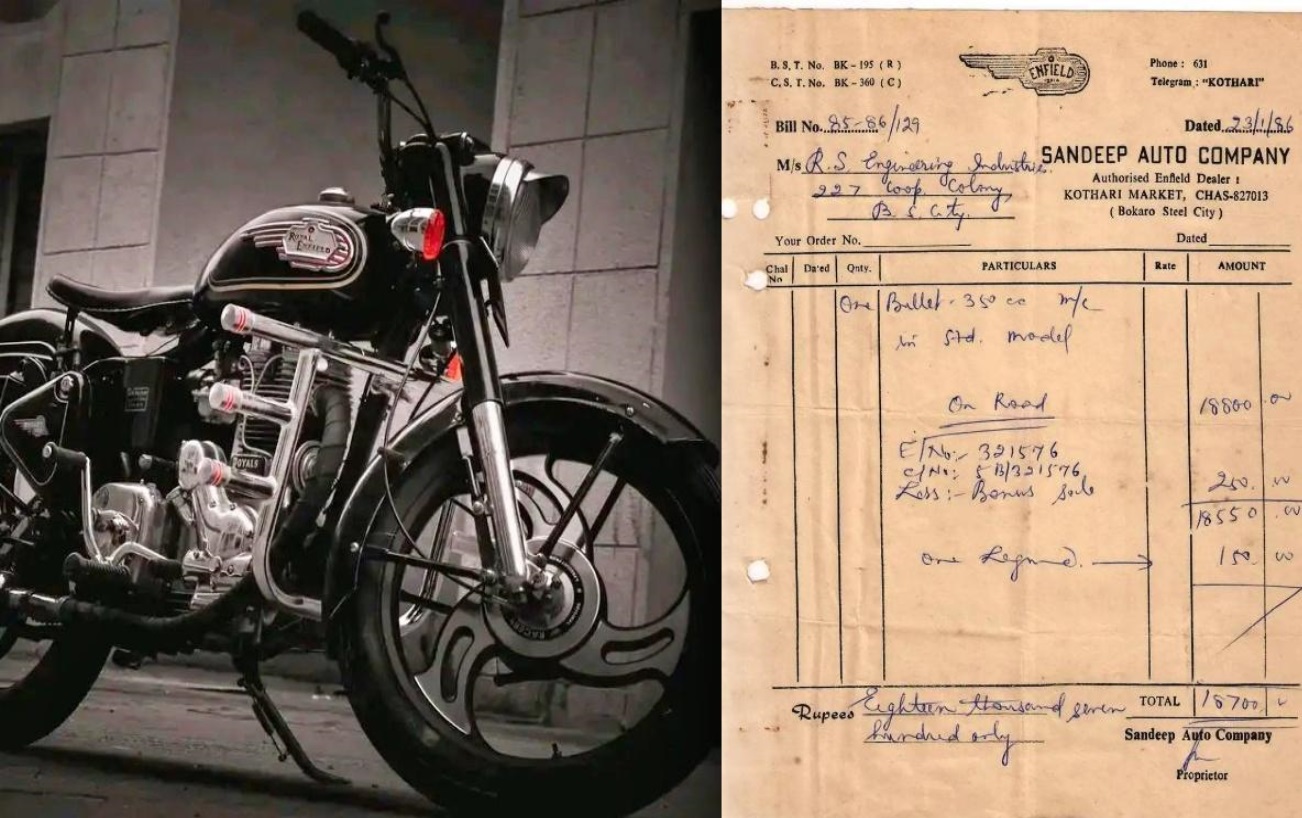 ROYAL
ENFIELD
ROYALS
B. S. T. No. BK - 195 ( R )
C. S. T. No. BK - 360 ( C )
ENFIELD
Phone : 631
Telegram : "KOTHARI"
Bill No. 85-86/129
Dated 23/1/86
M/s R.S. Engineering Industries
227 Coop. Colony
B. S. City.
SANDEEP AUTO COMPANY
Authorised Enfield Dealer :
KOTHARI MARKET, CHAS-827013
( Bokaro Steel City )
Your Order No.
Dated
Chal No Dated Qnty. PARTICULARS Rate AMOUNT
One Bullet - 350 cc m/c
in Std. model
On Road 18800.00
E/No:- 321576
C/No: 5B/321576
Less:- Bonus 250.00
18550.00
One 150.00
Rupees Eighteen thousand seven
hundred only
TOTAL 18700
Sandeep Auto Company
Proprietor